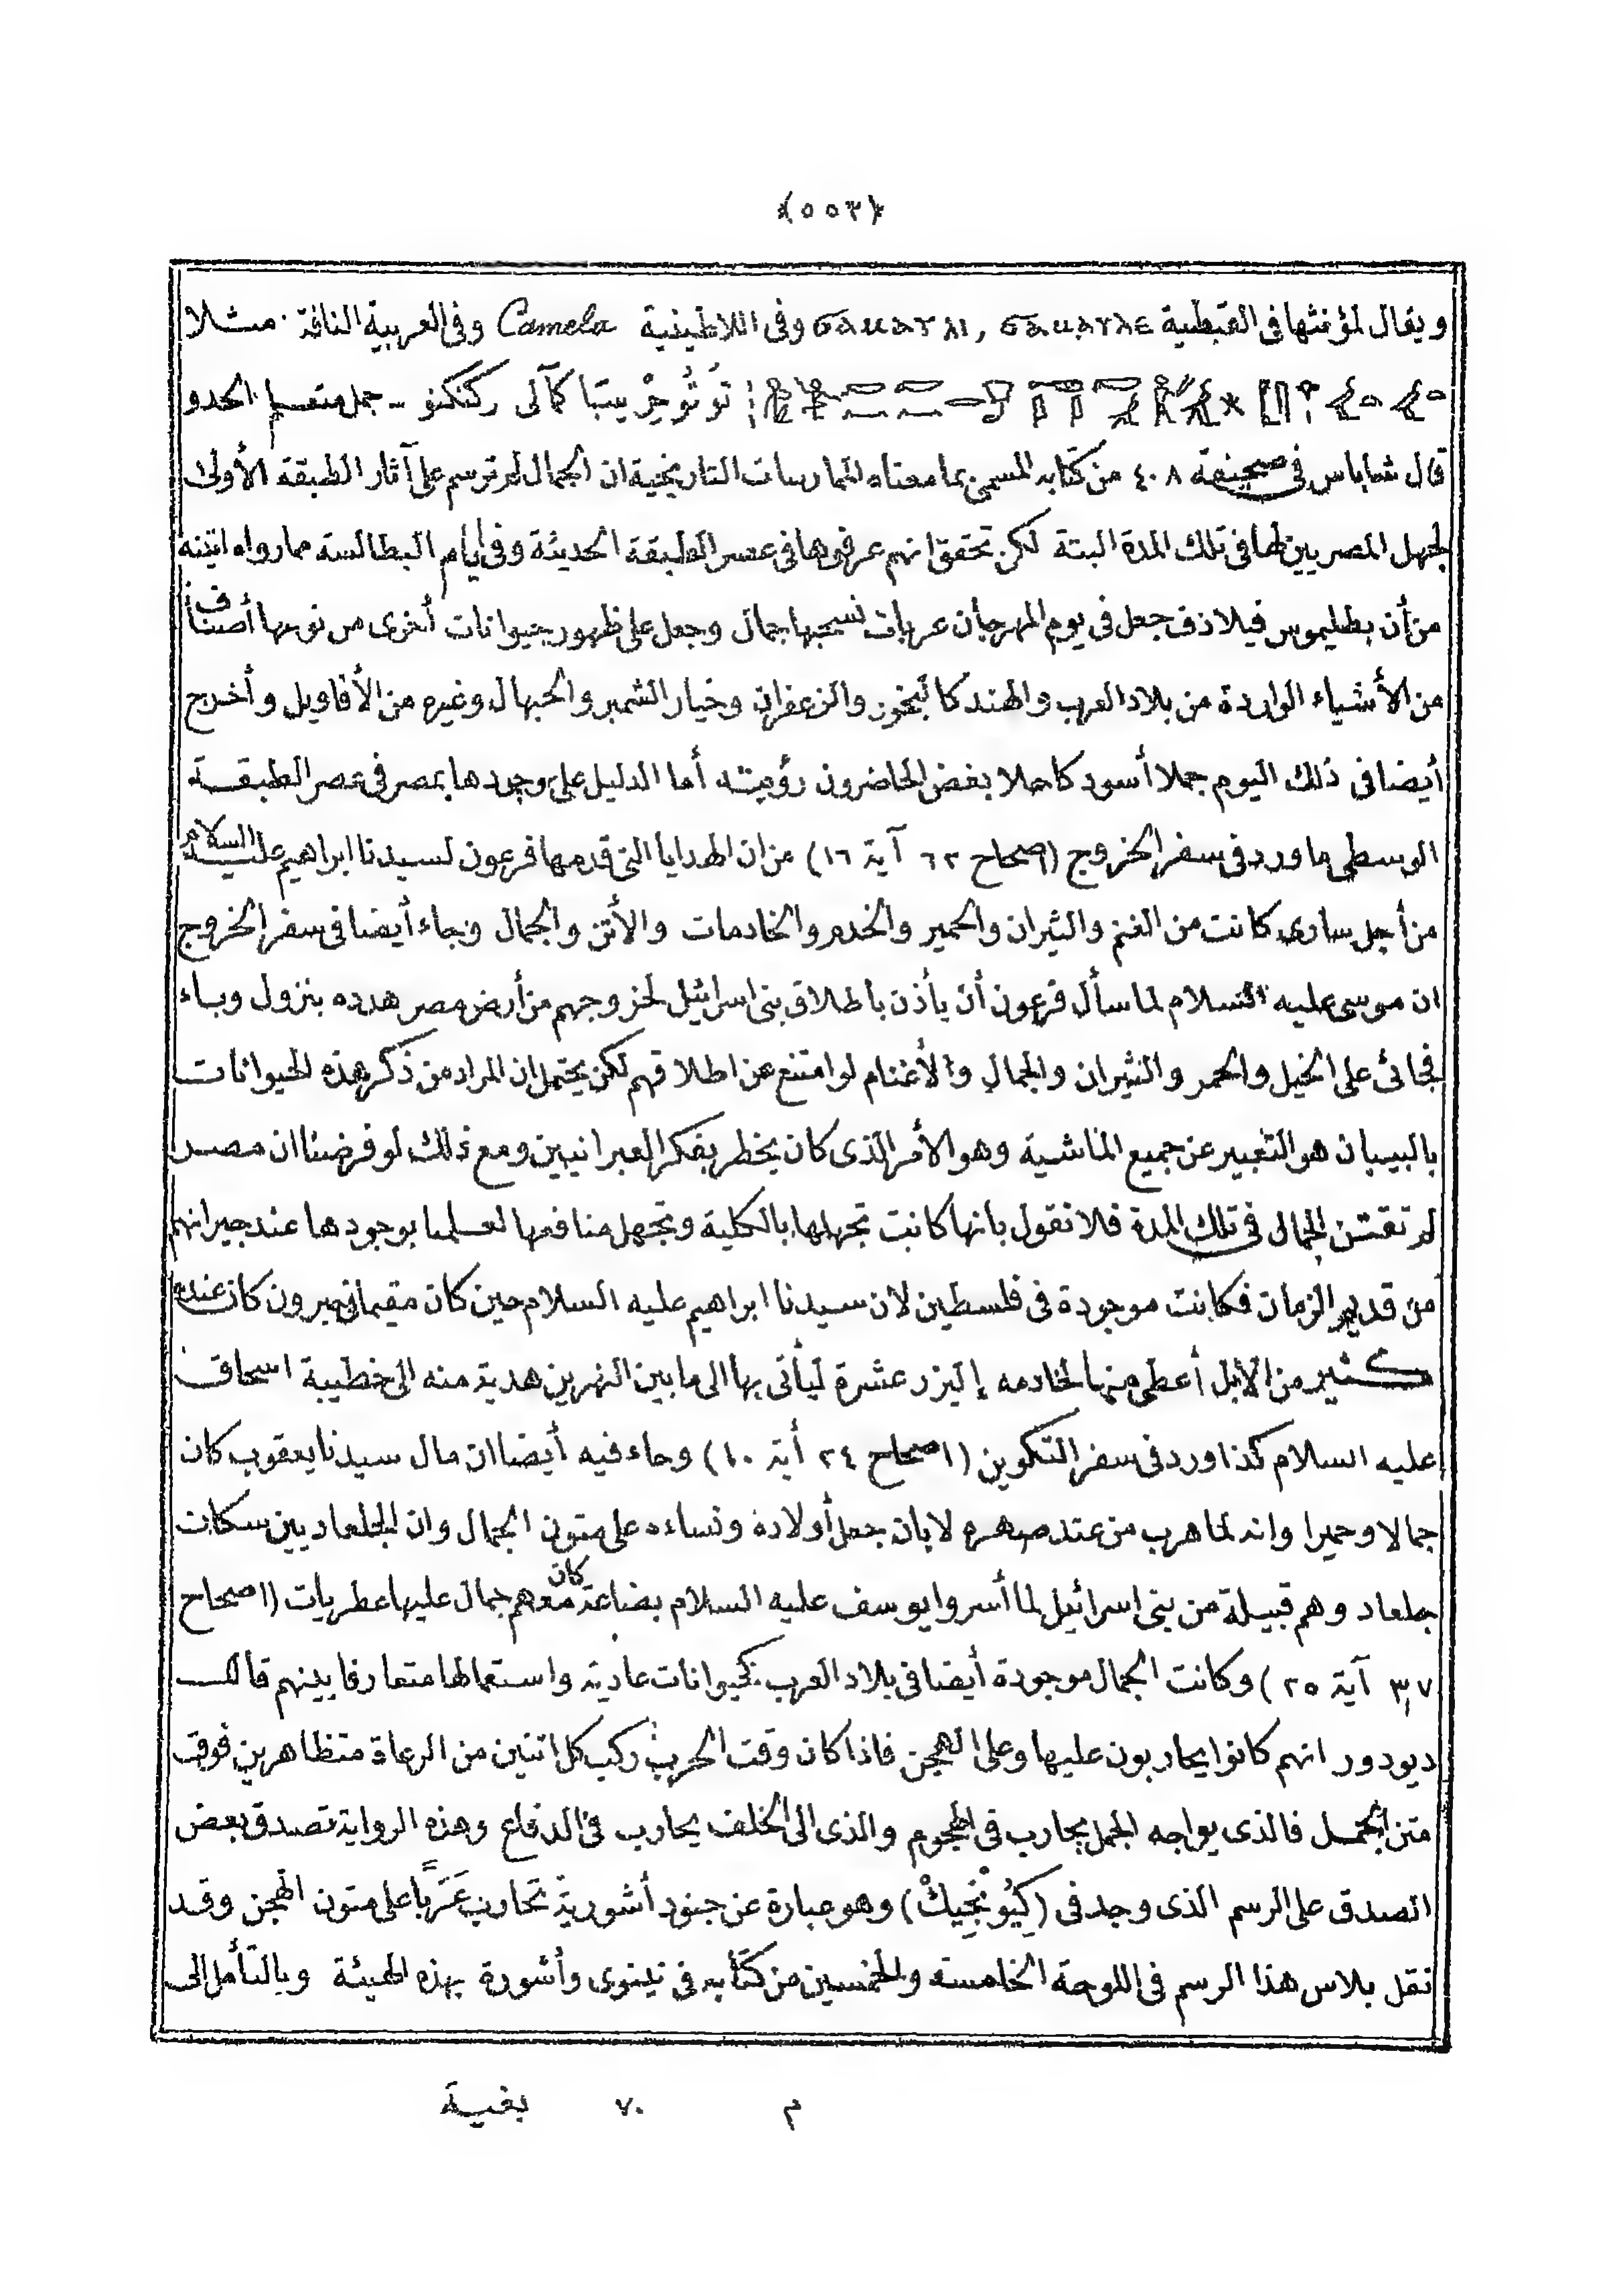 ﴿٥٥٣﴾
ويقال لمؤنثها فى القبطية ϭⲁⲙⲁⲩⲗⲉ , ϭⲁⲙⲁⲩⲗⲓ وفى اللاطينية Camela وفى العربية الناقة . مثلا
تَوتُوحِرْ يبتبا كآلى ركنكنو - جمل متعلم الحدو
قال شاباس فى صحيفة ٤٠٨ من كتابه المسمى بما معناه الممارسات التاريخية ان الجمال لم ترسم على آثار الطبقة الأولى
لجهل المصريين لها فى تلك المدة البتة لكن تحقق انهم عرفوها فى عصر الطبقة الحديثة وفى أيام البطالسة مما رواه اتينه
من أن بطليموس فيلادف جعل فى يوم المهرجان عربات تسحبها جمال وجعل على ظهور حيوانات أخرى من نوعها أصنافا
من الأشياء الواردة من بلاد العرب والهند كالبخور والزعفران وخيار الشمبر والحبهال وغيره من الأفاويل وأخرج
أيضا فى ذلك اليوم جملا أسود كاحلا بغض الحاضرون رؤيته . أما الدليل على وجودها بمصر فى عصر الطبقة
الوسطى ما ورد فى سفر الخروج (اصحاح ٦٢ آية ١٦) من ان الهدايا التى قدمها فرعون لسيدنا ابراهيم عليه السلام
من أجل سارى كانت من الغنم والثيران والحمير والخدم والخادمات والأتن والجمال وجاء أيضا فى سفر الخروج
ان موسى عليه السلام لما سأل فرعون أن يأذن باطلاق بنى اسرائيل لخروجهم من أرض مصر هدده بنزول وباء
فجائى على الخيل والحمر والثيران والجمال والأغنام لو امتنع عن اطلاقهم لكن يحتمل ان المراد من ذكر هذه الحيوانات
بالبيبان هو التعبير عن جميع الماشية وهو الأمر الذى كان يخطر بفكر العبرانيين ومع ذلك لو فرضنا ان مصر
لم تقتن الجمال فى تلك المدة فلا نقول بانها كانت تجهلها بالكلية وتجهل منافعها لعلمنا بوجودها عند جيرانهم
من قديم الزمان فكانت موجودة فى فلسطين لان سيدنا ابراهيم عليه السلام حين كان مقيما فى حبرون كان عنده
كثير من الابل أعطى منها لخادمه إليزر عشرة ليأتى بها الى ما بين النهرين هدية منه الى خطيبة اسحاق
عليه السلام كذا ورد فى سفر التكوين (اصحاح ٢٤ أية ١٠) وجاء فيه أيضا ان مال سيدنا يعقوب كان
جمالا وحميرا وانه لما هرب من عند صهره لابان جعل أولاده ونساءه على متون الجمال وان الجلعاديين سكان
جلعاد وهم قبيلة من بنى اسرائيل لما أسروا يوسف عليه السلام بضاعة كان معهم جمال عليها عطريات (اصحاح
٣٧ آية ٢٥) وكانت الجمال موجودة أيضا فى بلاد العرب كحيوانات عادية واستعمالها متعارفا بينهم قال
ديودور انهم كانوا يحاربون عليها وعلى الهجن فاذا كان وقت الحرب ركب كل اثنين من الرعاة متظاهرين فوق
متن الجمل فالذى يواجه الجمل يحارب فى الهجوم والذى الى الخلف يحارب فى الدفاع وهذه الرواية تصدق بعض
الصدق على الرسم الذى وجد فى (كِيُوُنْجِيكْ) وهو عبارة عن جنود أشورية تحارب عَرَبًا على متون الهجن وقد
نقل بلاس هذا الرسم فى اللوحة الخامسة والخمسين من كتابه فى نينوى وأشورة بهذه الهيئة وبالتأمل الى
م ٧٠ بغية